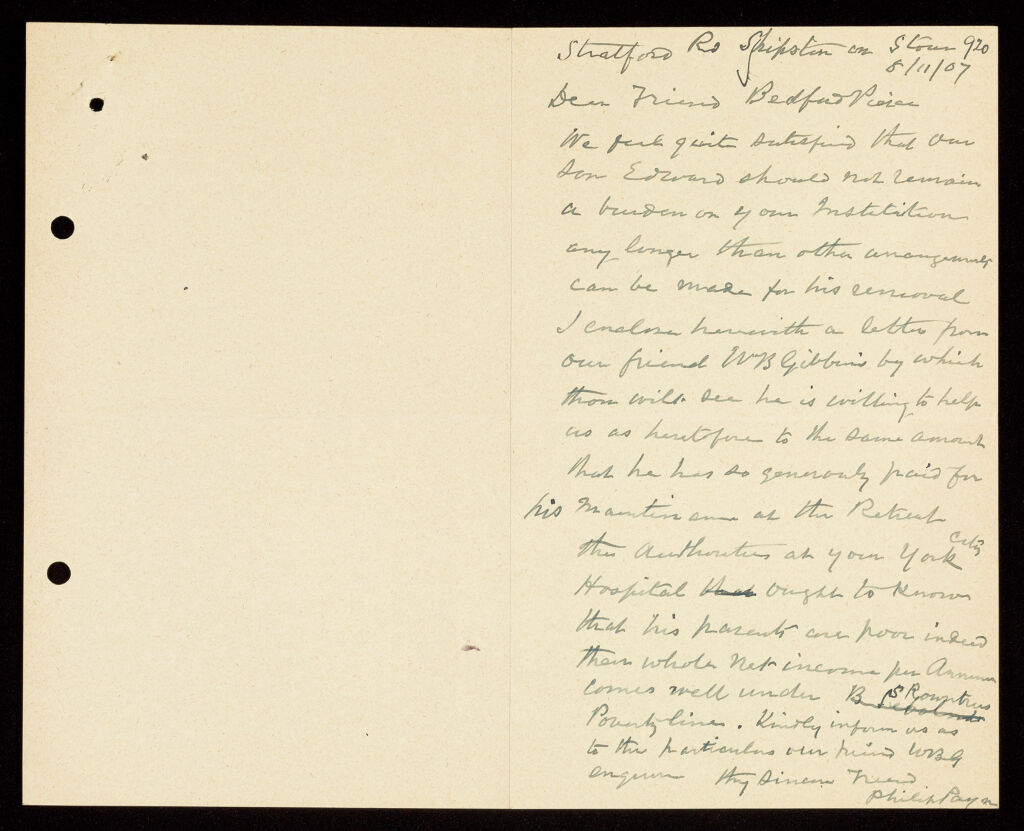 Stratford Rd Shipston on Stour 920
5/11/07
Dear Friend Bedford Pierce
We feel quite satisfied that our
son Edward should not remain
a burden on your Institution
any longer than other arrangements
can be made for his removal
I enclose herewith a letter from
our friend WB Gibbins by which
thou will see he is willing to help
us as heretofore to the same amount
that he has so generously paid for
his Maintenance at the Retreat
the Authorities at your York City
Hospital that ought to know
that his parents are poor indeed
their whole Net income per Annum
comes well under B S Rowntrees
Poverty line. Kindly inform us as
to the particulars our friend WBG
enquires thy sincere Friend
Philip Payn